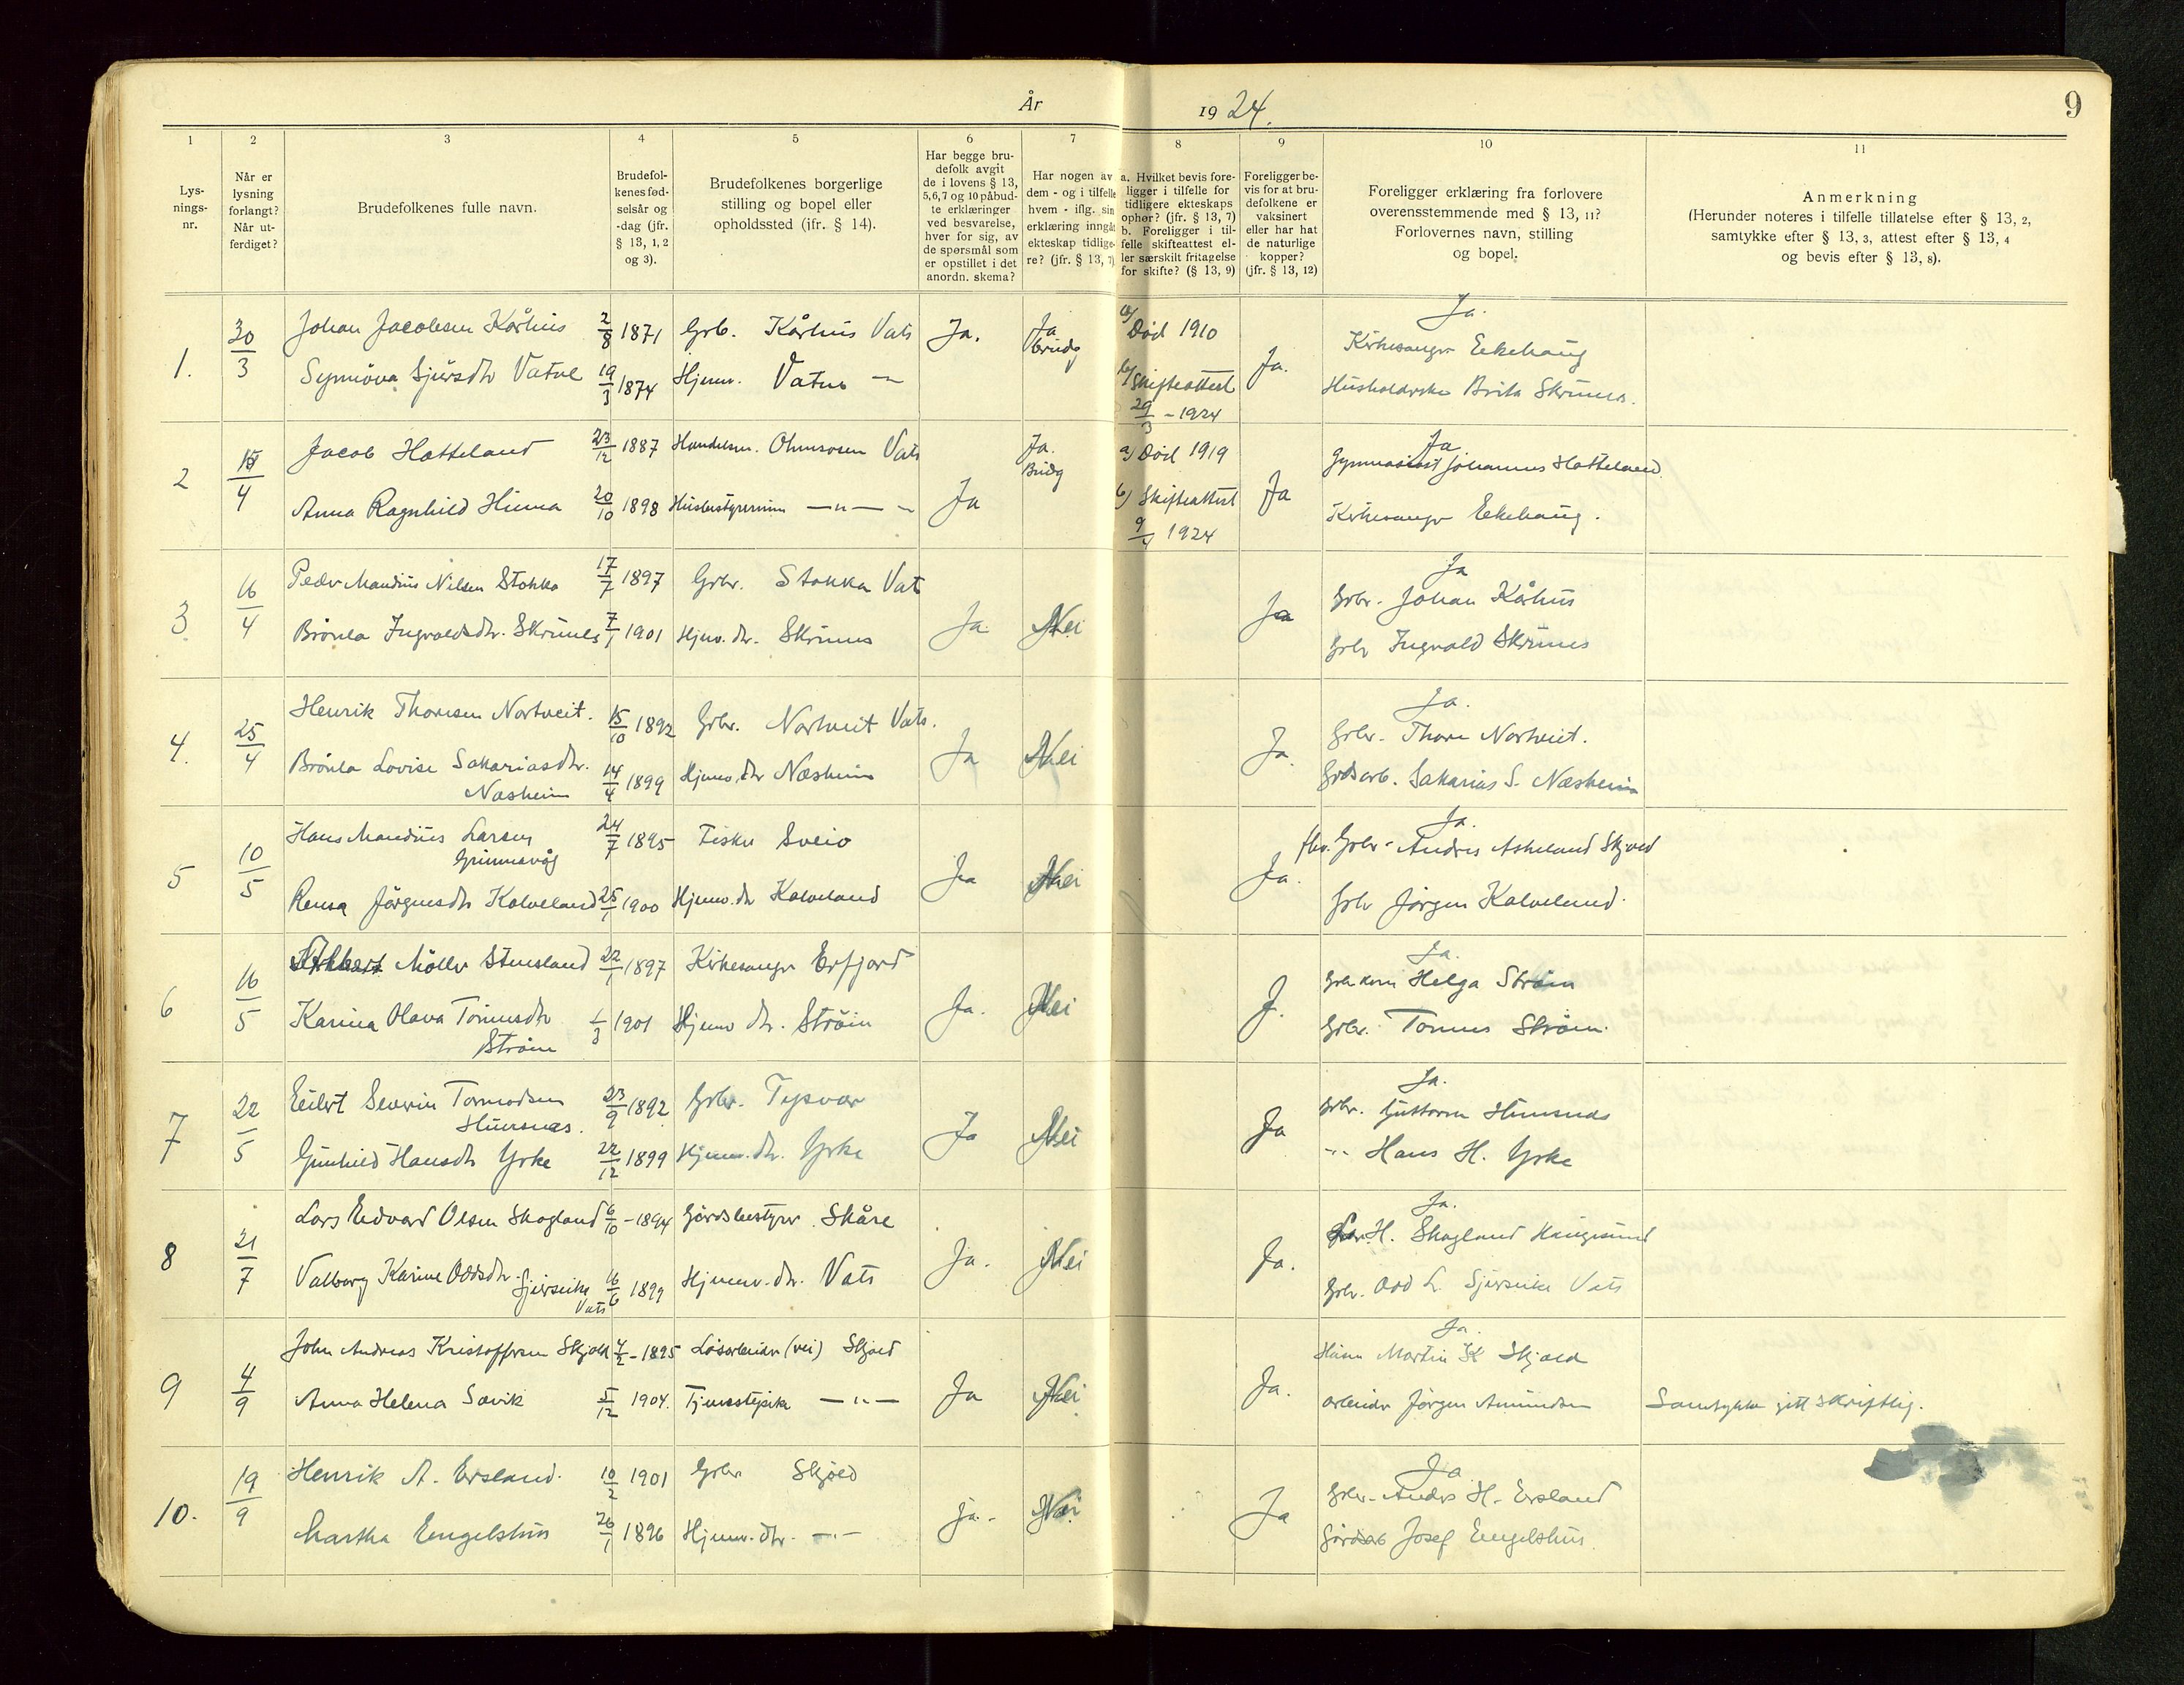 År 1924. 9
1 2 3 4 5 6 7 8 9 10 11
Lys-
nings-
nr.
Når er
lysning
forlangt?
Når ut-
ferdiget?
Brudefolkenes fulle navn.
Brudefol-
kenes fød-
selsår og
-dag (jfr.
§ 13, 1, 2
og 3).
Brudefolkenes borgerlige
stilling og bopel eller
opholdssted (jfr. § 14).
Har begge bru-
defolk avgit
de i lovens § 13,
5,6,7 og 10 påbud-
te erklæringer
ved besvarelse,
hver for sig, av
de spørsmål som
er opstillet i det
anordn. skema?
Har nogen av
dem - og i tilfelle
hvem - iflg. sin
erklæring inngåt
ekteskap tidlige-
re? (jfr. § 13, 7)
a. Hvilket bevis fore-
ligger i tilfelle for
tidligere ekteskaps
ophør? (jfr. § 13, 7)
b. Foreligger i til-
felle skifteattest el-
ler særskilt fritagelse
for skifte? (§ 13, 9)
Foreligger be-
vis for at bru-
defolkene er
vaksinert
eller har hat
de naturlige
kopper?
(jfr. § 13, 12)
Foreligger erklæring fra forlovere
overensstemmende med § 13, 11?
Forlovernes navn, stilling
og bopel.
Anmerkning
(Herunder noteres i tilfelle tillatelse efter § 13, 2,
samtykke efter § 13, 3, attest efter § 13, 4
og bevis efter § 13, 8).
1. 30/3 Johan Jacobsen Kårhus 2/8 1871 Grb. Kårhus Vats Ja. Ja brudg a) Død 1910 Ja. Ja.
Kirkesanger Eekehaug
Synnöva Sjursdtr Vatne 19/3 1874 Hjemv. Vatne — b) Skifteattest 29/3 - 1924
Husholderske Brita Skrunes.
2 15/4 Jacob Hatteland 23/12 1887 Handelsm. Ølmsosen Vats Ja Ja. Brudg a) Død 1919 Ja Ja
Gymnasiast Johannes Hatteland
Anna Ragnhild Hiima 20/10 1898 Husbestyrerinne —"— b) Skifteattest 9/4 1924
Kirkesanger Eekehaug.
3 16/4 Peder Mandius Nilsen Stokka 17/7 1897 Grbr. Stokka Vat Ja Nei Ja Ja
Grbr. Johan Kårhus
Brönla Ingvaldsdtr. Skrunes 7/1 1901 Hjmv. dtr. Skrunes
Grbr Ingvald Skrunes
4. 25/4 Henrik Thoresen Nortveit. 15/10 1892 Grbr. Nortveit Vats. Ja Nei Ja. Ja.
Grbr. Thore Nortveit.
Brönla Lovise Sakariasdtr.
Nasheim 14/4 1899 Hjemv. dtr Nasheim
Grdsarb. Sakarias S. Nasheim
5 10/5 Hans Mandius Larsen
Grunnavåg 24/7 1895 Fisker Sveio Ja Nei Ja. Ja.
fhv. Grbr. Andres Askeland Skjold
Rensa Jörgensdtr Kalveland 25/1 1900 Hjemv. dtr Kalveland
Grbr Jörgen Kalveland.
6 16/5 Möller Stensland 22/1 1897 Kirkesanger Erfjord Ja. Nei J. Ja.
Grbr kone Helga Ström
Karina Olava Tönnesdtr
Ström 1/3 1901 Hjemv dtr. Ström
Grbr. Tönnes Ström.
7 22/5 Eilert Severin Tormodsen
Hunsnes. 23/9 1892 Grbr. Tysvær Ja Nei Ja Ja.
Grbr. Guttorm Hunsnes
Gunhild Hansdtr Yrke 22/12 1899 Hjemv. dtr. Yrke
-"- Hans H. Yrke
8 21/7 Lars Edvard Olsen Skogland 6/10 - 1894 Gårdsbestyrer. Skåre Ja. Nei Ja. Ja.
H. Skogland Haugesund
Valborg Karine Oddsdtr.
Sjurseike
Vats 16/6 1899 Hjemv. dtr. Vats
Grbr. Odd L. Sjurseike Vats
9 4/9 John Andreas Kristoffersen Skjold 4/2 - 1895 Løsarbeider (vei) Skjold Ja Nei Ja. Ja.
Martin K Skjold
Anna Helena Sævik 5/12 1904. Tjenestepike —"—
arbeider Jörgen Amundsen Samtykke gitt skriftlig.
10. 19/9 Henrik A. Ersland. 10/2 1901 Grbr Skjold ja. Nei Ja Ja
Grbr. Anders H. Ersland
Martha Engelshus 26/1 1896 Hjemv. dtr. —"—
Gårdsarb Josef Engelshus